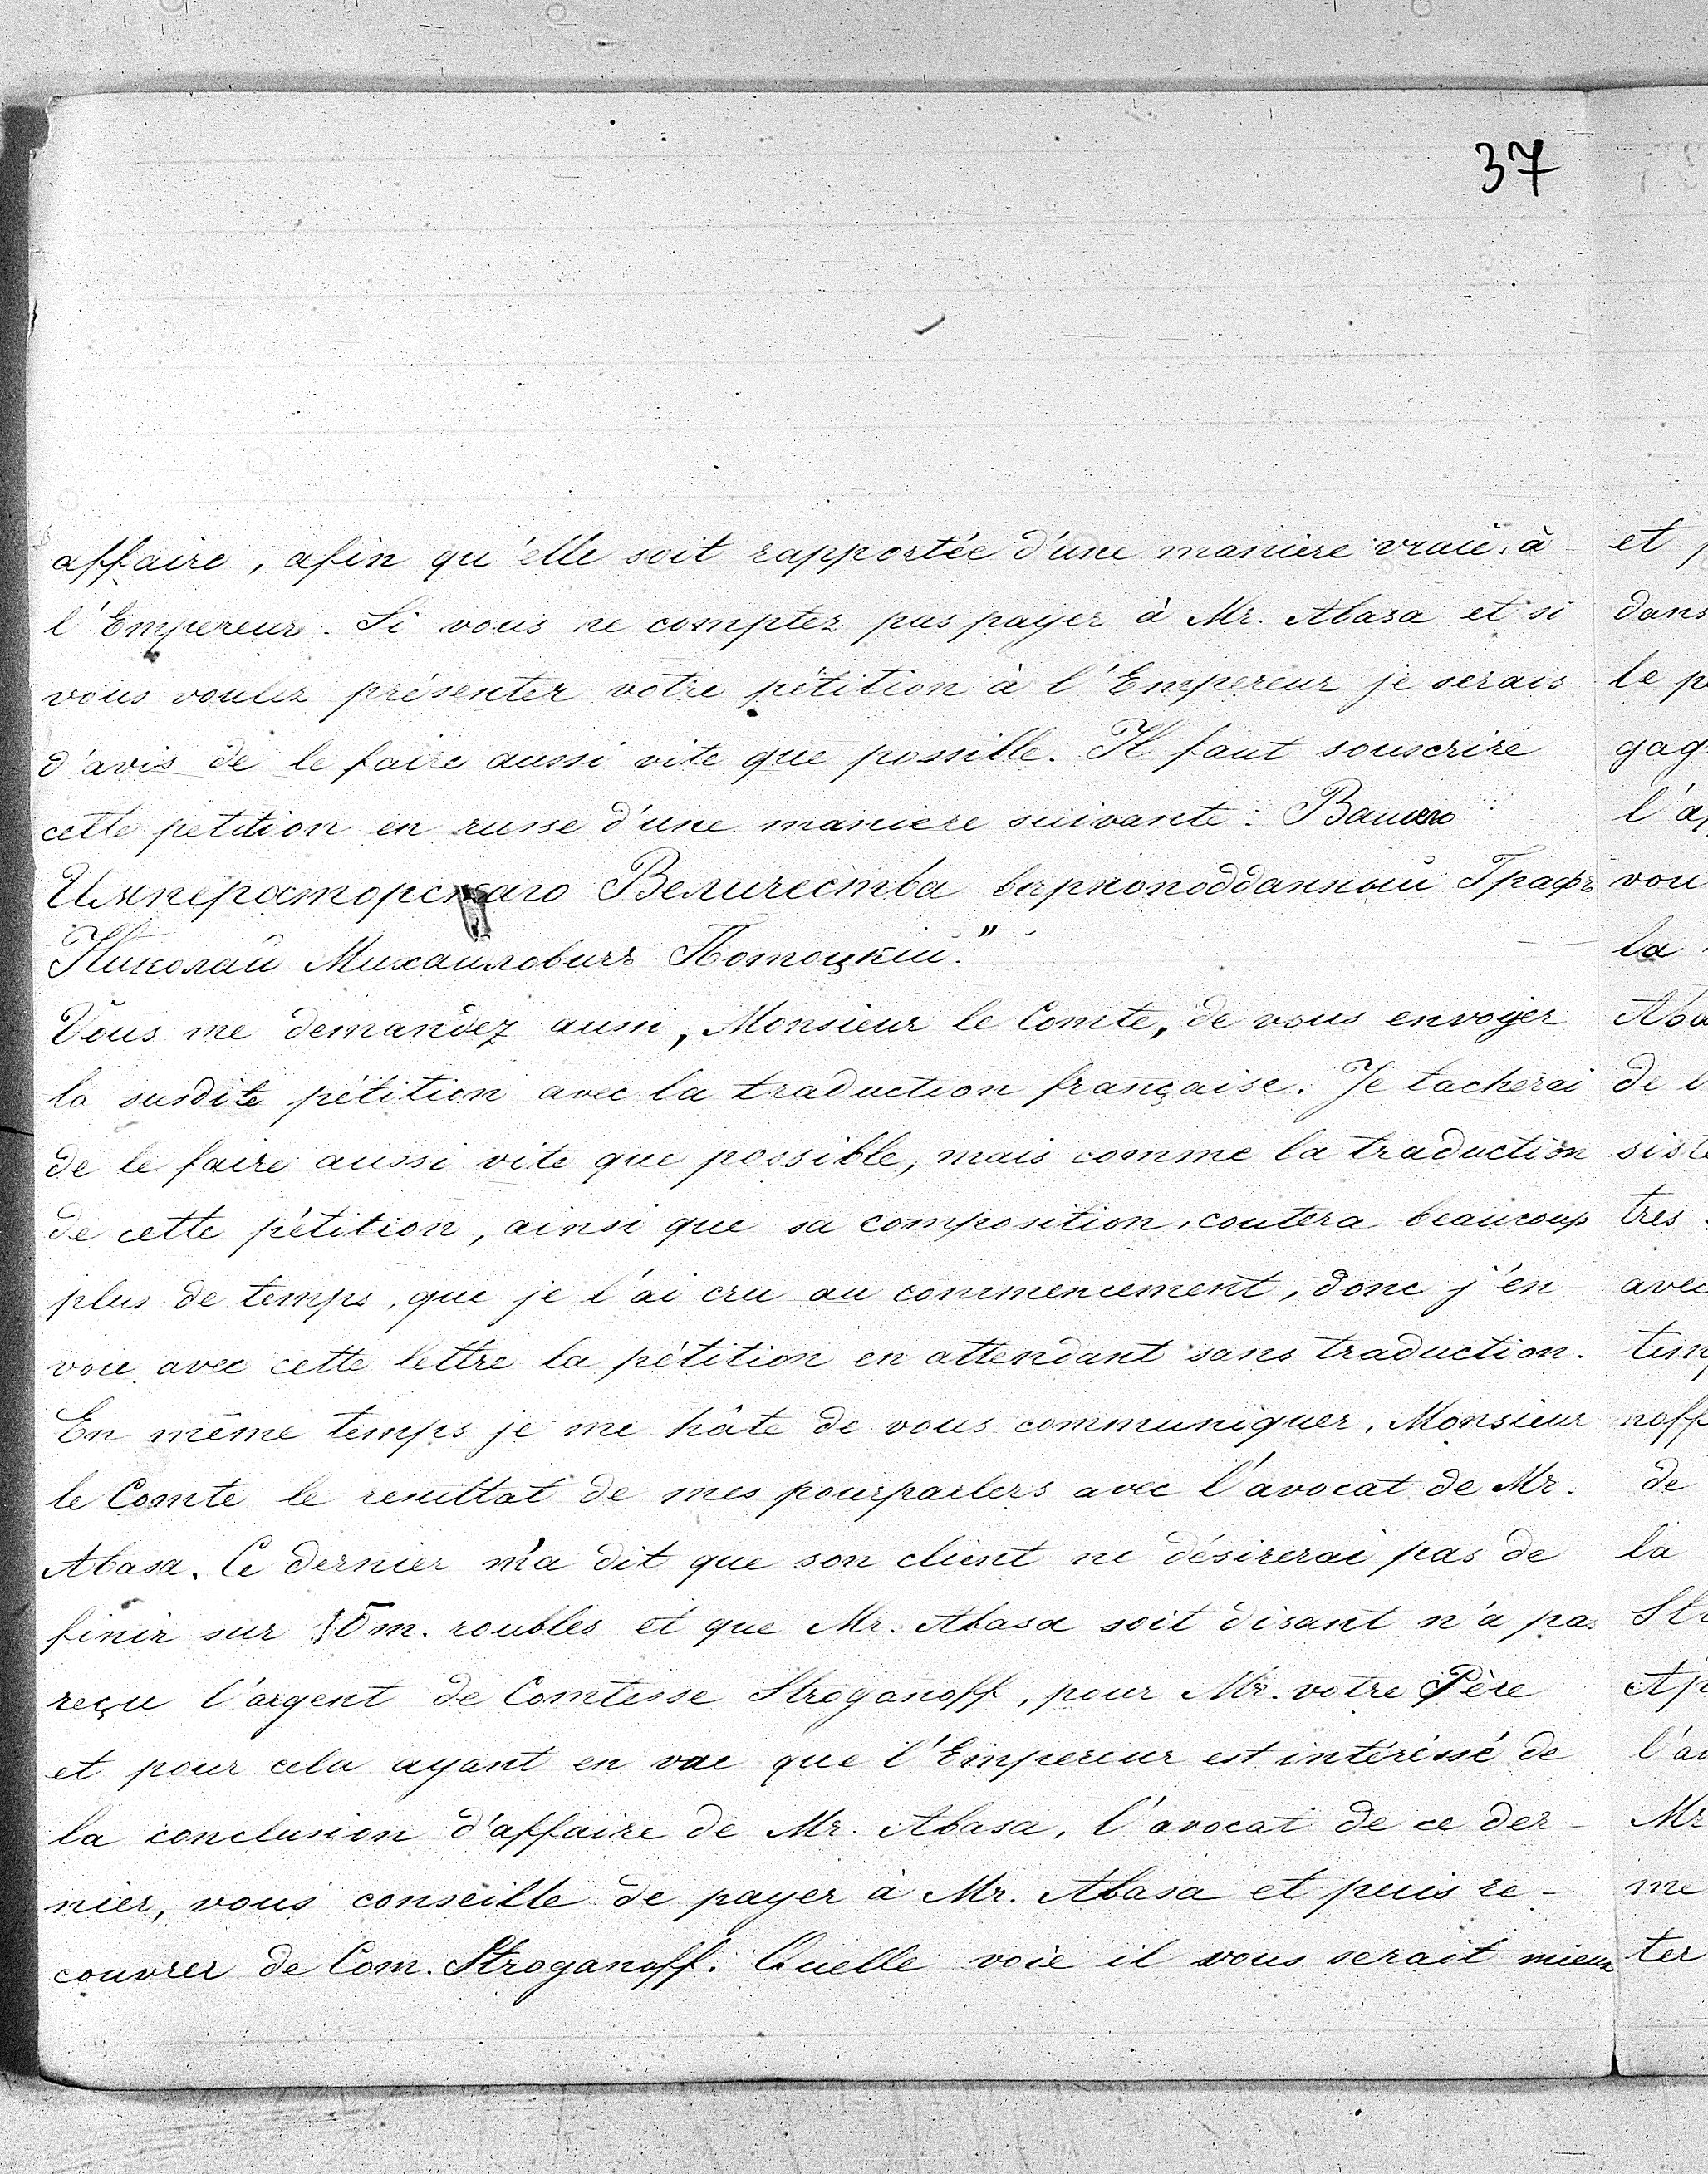 37
affaire, afin qu'elle soit rapportée d'une maniere vraie à
l'Empereur. Si vous ne comptez pas payer à Mr. Abasa et si
vous voulez présenter votre pétition à l'Empereur je serais
d'avis de le faire aussi vite que possible. Il faut souscrire
cette petition en russe d'une maniere suivante: Вашего
Императорскаго Величества вѣрноподданный Графъ
Николай Михаиловичъ Потоцкій."
Vous me demandez aussi, Monsieur le Comte, de vous envoyer
la susdite pétition avec la traduction française. Je tacherai
de le faire aussi vite que possible, mais comme la traduction
de cette pétition, ainsi que sa composition, coutera beaucoup
plus de temps, que je l'ai cru au commencement, donc j'en-
voie avec cette lettre la pétition en attendant sans traduction.
En même temps je me hâte de vous communiquer, Monsieur
le Comte le resultat de mes pourparlers avec l'avocat de Mr.
Abasa. Ce dernier m'a dit que son client ne désirerai pas de
finir sur 15 m. roubles et que Mr. Abasa soit disant n'a pas
reçu l'argent de Comtesse Stroganoff, pour Mr. votre Père
et pour cela ayant en vue que l'Empereur est intéréssé de
la conclusion d'affaire de Mr. Abasa, l'avocat de ce der-
nier, vous conseille de payer à Mr. Abasa et puis re-
couvrer de Com. Stroganoff. Quelle voie il vous serait mieux
et
dans
le
gag
l'a
vou
la
Aba
de
siste
tres
avec
tem
noff
de
la
St
Ap
l'av
Mr
me
ter